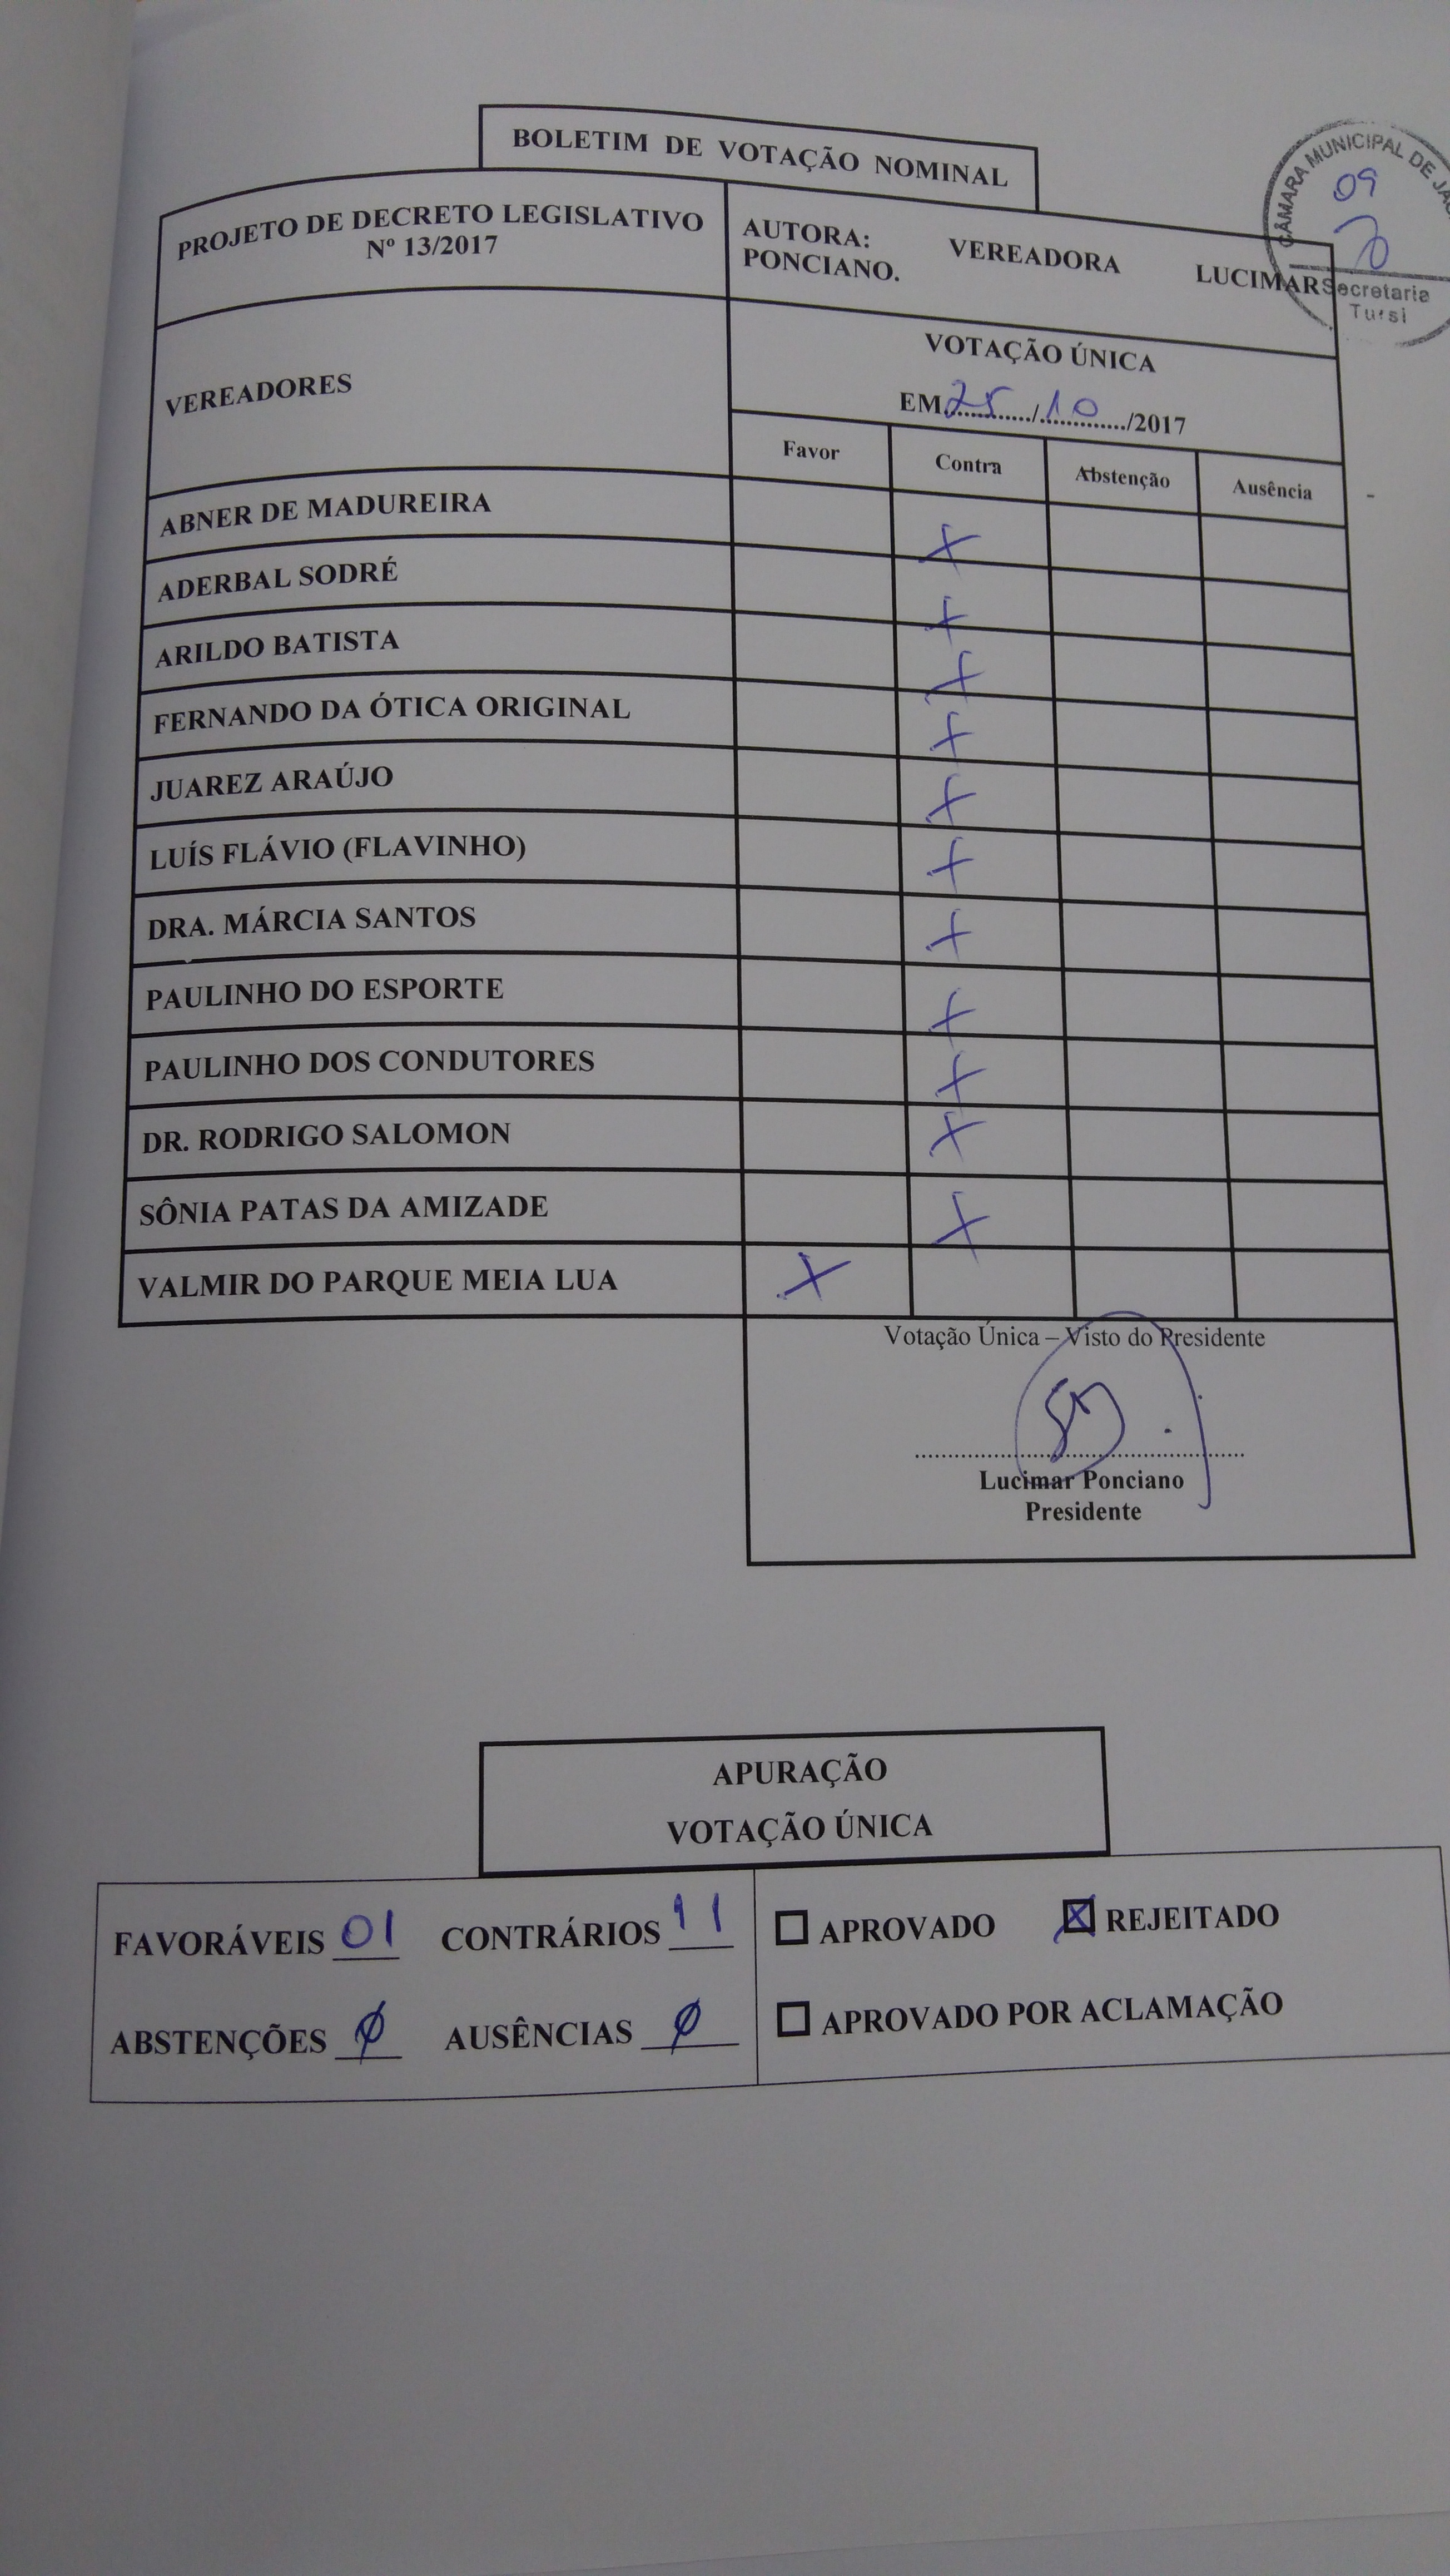 BOLETIM DE VOTAÇÃO NOMINAL
CÂMARA MUNICIPAL DE
09
Secretaria
Tursi
PROJETO DE DECRETO LEGISLATIVO
Nº 13/2017
AUTORA: VEREADORA LUCIMAR
PONCIANO.
VEREADORES
VOTAÇÃO ÚNICA
EM 25/10/2017
Favor Contra Abstenção Ausência
ABNER DE MADUREIRA X
ADERBAL SODRÉ X
ARILDO BATISTA X
FERNANDO DA ÓTICA ORIGINAL X
JUAREZ ARAÚJO X
LUÍS FLÁVIO (FLAVINHO) X
DRA. MÁRCIA SANTOS X
PAULINHO DO ESPORTE X
PAULINHO DOS CONDUTORES X
DR. RODRIGO SALOMON X
SÔNIA PATAS DA AMIZADE X
VALMIR DO PARQUE MEIA LUA X
Votação Única – Visto do Presidente
Lucimar Ponciano
Presidente
APURAÇÃO
VOTAÇÃO ÚNICA
FAVORÁVEIS 01 CONTRÁRIOS 11
ABSTENÇÕES Ø AUSÊNCIAS Ø
☐ APROVADO ☒ REJEITADO
☐ APROVADO POR ACLAMAÇÃO